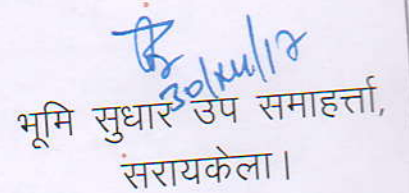 30/XII/17
भूमि सुधार उप समाहर्त्ता,
सरायकेला।